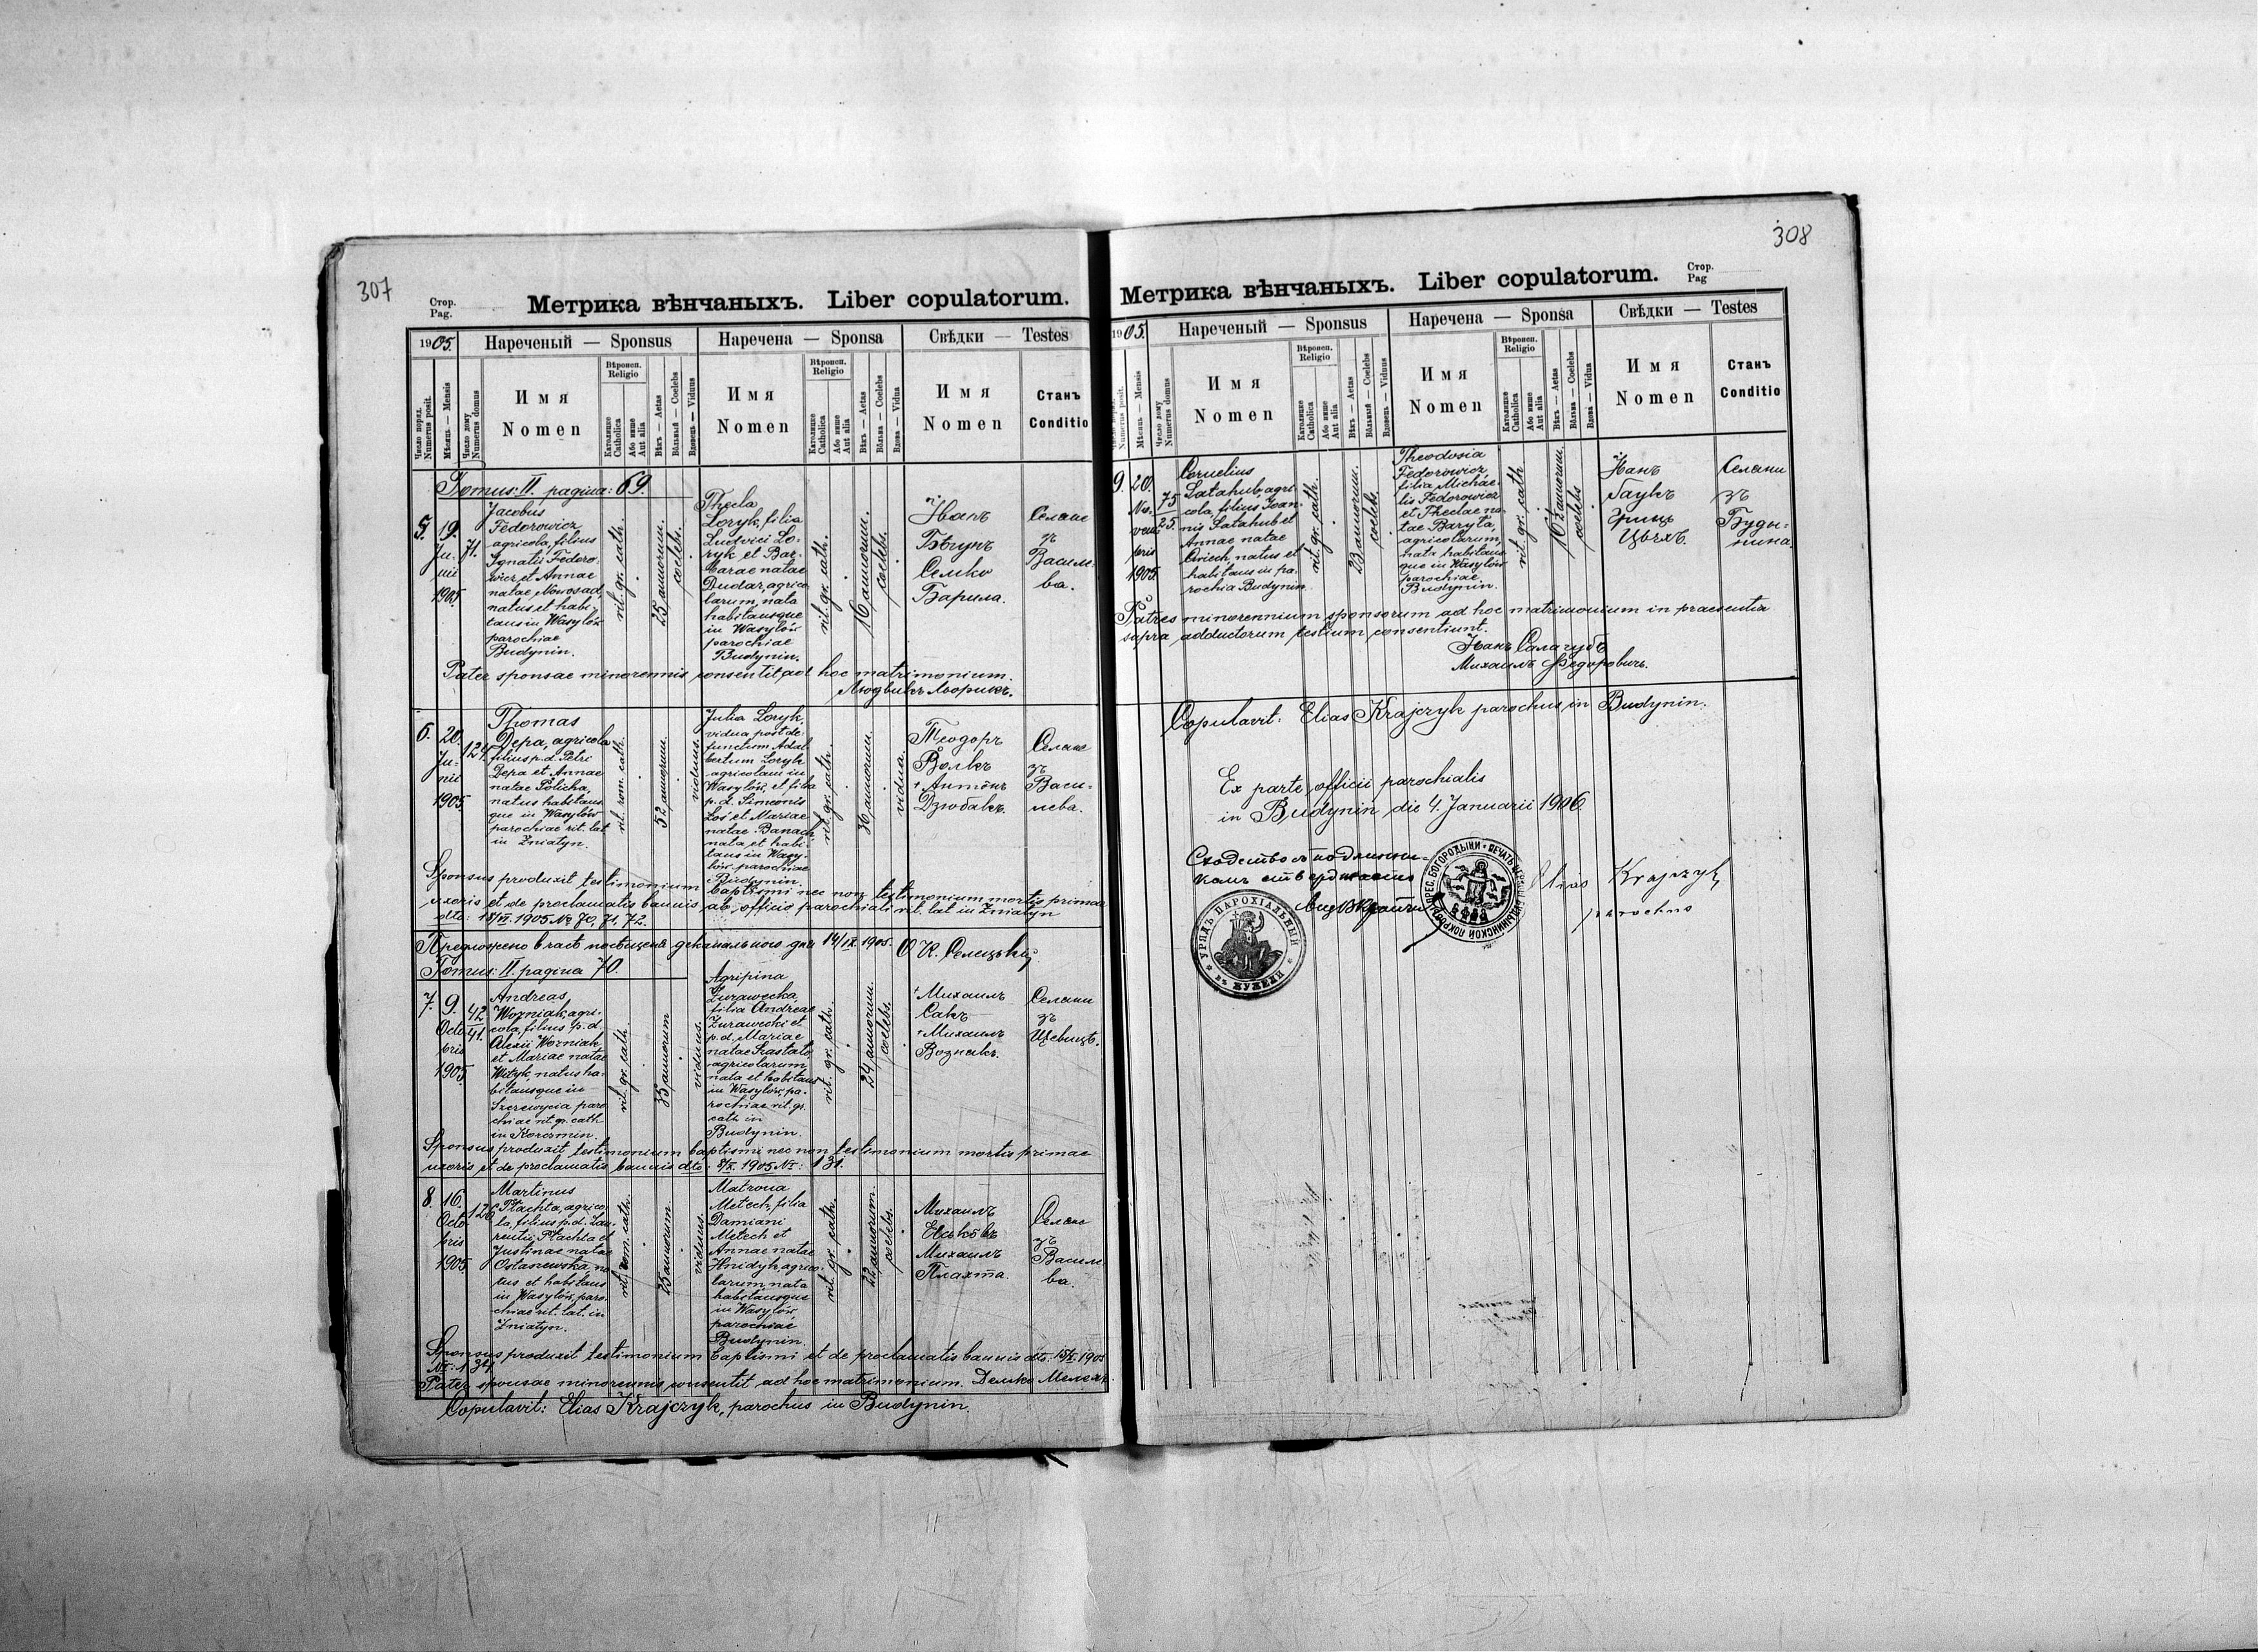 307
Стор.
Pag.
Метрика вѣнчаныхъ. Liber copulatorum.
1905.
Нареченый — Sponsus
Наречена — Sponsa
Свѣдки — Testes
Число поряд.
Numerus posit.
Мѣсяць — Mensis
Число дому
Numerus domus
Имя
Nomen
Вѣроисп.
Religio
Католицке
Catholica
Або инше
Aut alia
Вѣкъ — Aetas
Вôльный — Coelebs
Вдовець — Viduus
Имя
Nomen
Вѣроисп.
Religio
Католицке
Catholica
Або инше
Aut alia
Вѣкъ — Aetas
Вôльна — Coelebs
Вдова — Vidua
Имя
Nomen
Станъ
Conditio
Tomus: II. pagina: 69.
5.
19.
Ju-
nii
1905.
71.
Jacobus
Fedorowicz,
agricola, filius
Ignatii Fedoro-
wicz et Annae
natae Nowosad,
natus et habi-
tans in Wasylów
parochiae
Budynin.
rit. gr. cath.
25 annorum.
coelebs.
Thecla
Loryk, filia
Ludvici Lo-
ryk et Bar-
barae natae
Dudar, agrico-
larum, nata
habitansque
in Wasylów
parochiae
Budynin.
rit. gr. cath.
16 annorum.
coelebs.
Иванъ
Бѣгунъ
Семко
Барила.
Селяне
зъ
Василе-
ва.
Pater sponsae minorennis consentit ad hoc matrimonium.
Людвикъ Лѣорикъ.
6.
20.
Ju-
nii
1905.
124.
Thomas
Depa, agricola
filius p. d. Petri
Depa et Annae
natae Policha,
natus habitans
que in Wasylów
parochiae rit. lat
in Żniatyn.
rit. rom. cath.
52 annorum.
viduus.
Julia Loryk,
vidua post de-
functum Adal-
bertum Loryk
agricolam in
Wasylów, et filia
p. d. Simeonis
Łoś et Mariae
natae Banach
nata et habi-
tans in Wasy-
lów parochiae
Budynin.
rit. gr. cath.
36 annorum.
vidua.
Теодоръ
Вôлкъ
+ Антôнъ
Дзюбакъ.
Селяне
зъ
Васи-
лева.
Sponsus produxit testimonium baptismi nec non testimonium mortis primae
uxoris et de proclamatis bannis ab officio parochiali rit. lat in Żniatyn
dto: 18/VI. 1905 № 70, 71. 72.
14/IX. 1905.
Tomus: II. pagina 70.
7.
9.
Octo-
bris
1905
42
41.
Andreas
Wozniak, agri-
cola, filius p. d.
Alexii Wozniak
et Mariae natae
Wityk, natus ha-
bitansque in
Szczewycia paro-
chiae rit. gr. cath
in Korczmin.
rit. gr. cath
35 annorum
viduus.
Agripina
Żurawecka,
filia Andreae
Żurawecki et
p. d. Mariae
natae Szastało
agricolarum,
nata et habitans
in Wasylów, pa-
rochiae rit. gr.
cath in
Budynin.
rit. gr. cath.
24 annorum.
coelebs.
+ Михаилъ
Сакъ
+ Михаилъ
Вознякъ.
Селяни
зъ
Щевиць.
Sponsus produxit testimonium baptismi nec non testimonium mortis primae
uxoris et de proclamatis bannis dto: 8/X. 1905 №: 131.
8.
16.
Octo-
bris
1905
126.
Martinus
Płachta, agrico-
la, filius p. d. Lau-
rentii Płachta et
Justinae natae
Ostasewska, na-
tus et habitans
in Wasylów, paro-
chiae rit. lat. in
Żniatyn.
rit. rom. cath.
25 annorum.
viduus.
Matrona
Metech, filia
Damiani
Metech et
Annae natae
Hnidyk, agrico-
larum, nata
habitansque
in Wasylów
parochiae
Budynin
rit. gr. cath.
22 annorum.
coelebs.
Михаилъ
Еськôвъ
Михаилъ
Плахта.
Селяне
зъ
Василе
ва.
Sponsus produxit testimonium baptismi et de proclamatis bannis dto: 15/X. 1905
№: 134.
Pater sponsae minorennis consentit ad hoc matrimonium. Демко Мелехъ.
Copulavit: Elias Krajczyk, parochus in Budynin.
308
Метрика вѣнчаныхъ. Liber copulatorum.
Стор.
Pag
1905.
Нареченый — Sponsus
Наречена — Sponsa
Свѣдки — Testes
Numerus posit.
Мѣсяць — Mensis
Число дому
Numerus domus
Имя
Nomen
Вѣроисп.
Religio
Католицке
Catholica
Або инше
Aut alia
Вѣкъ — Aetas
Вôльный — Coelebs
Вдовець — Viduus
Имя
Nomen
Вѣроисп.
Religio
Католицке
Catholica
Або инше
Aut alia
Вѣкъ — Aetas
Вôльна — Coelebs
Вдова — Vidua
Имя
Nomen
Станъ
Conditio
9.
20.
No-
vem-
bris
1905.
75
25.
Cornelius
Sałahub, agri-
cola, filius Joan-
nis Sałahub et
Annae natae
Cwiech, natus et
habitans in pa-
rochia Budynin.
rit. gr. cath.
23 annorum.
coelebs.
Theodosia
Fedorowicz,
filia Michae-
lis Fedorowicz
et Theclae na-
tae Baryła,
agricolarum,
nata habitans-
que in Wasylów
parochiae
Budynin.
rit. gr. cath
16½ annorum.
coelebs
Иванъ
Гаукъ
Грицъ
Цьвхъ.
Селяни
зъ
Буды-
нина.
Patres minorennium sponsorum ad hoc matrimonium in praesentia
supra adductorum testium consentiunt.
Иванъ Салагубъ
Михаилъ Федоровичъ.
Copulavit: Elias Krajczyk parochus in Budynin.
Ex parte officii parochialis
in Budynin, die 4. Januarii 1906
Elias Krajczyk,
parochus
Сходство съ подлинни-
комъ
УРЯДЪ ПАРОХІАЛЬНЫЙ